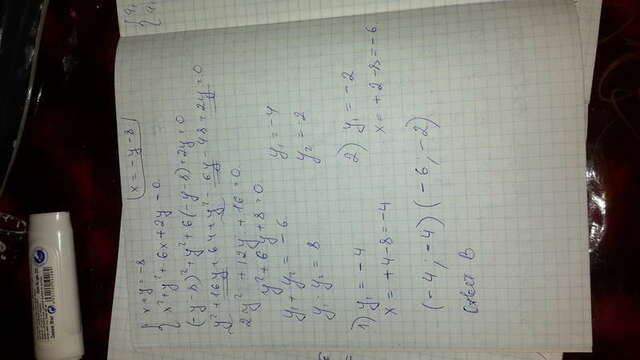 { x+y=-8   x=-y-8
{ x²+y²+6x+2y=0
(-y-8)²+y²+6(-y-8)+2y=0
y²+16y+64+y²-6y-48+2y=0
2y²+12y+16=0
y²+6y+8=0
y₁+y₂=-6   y₁=-4
y₁·y₂=8   y₂=-2
1) y₁=-4   2) y₁=-2
x=+4-8=-4   x=+2-8=-6
(-4;-4) (-6;-2)
Ответ В